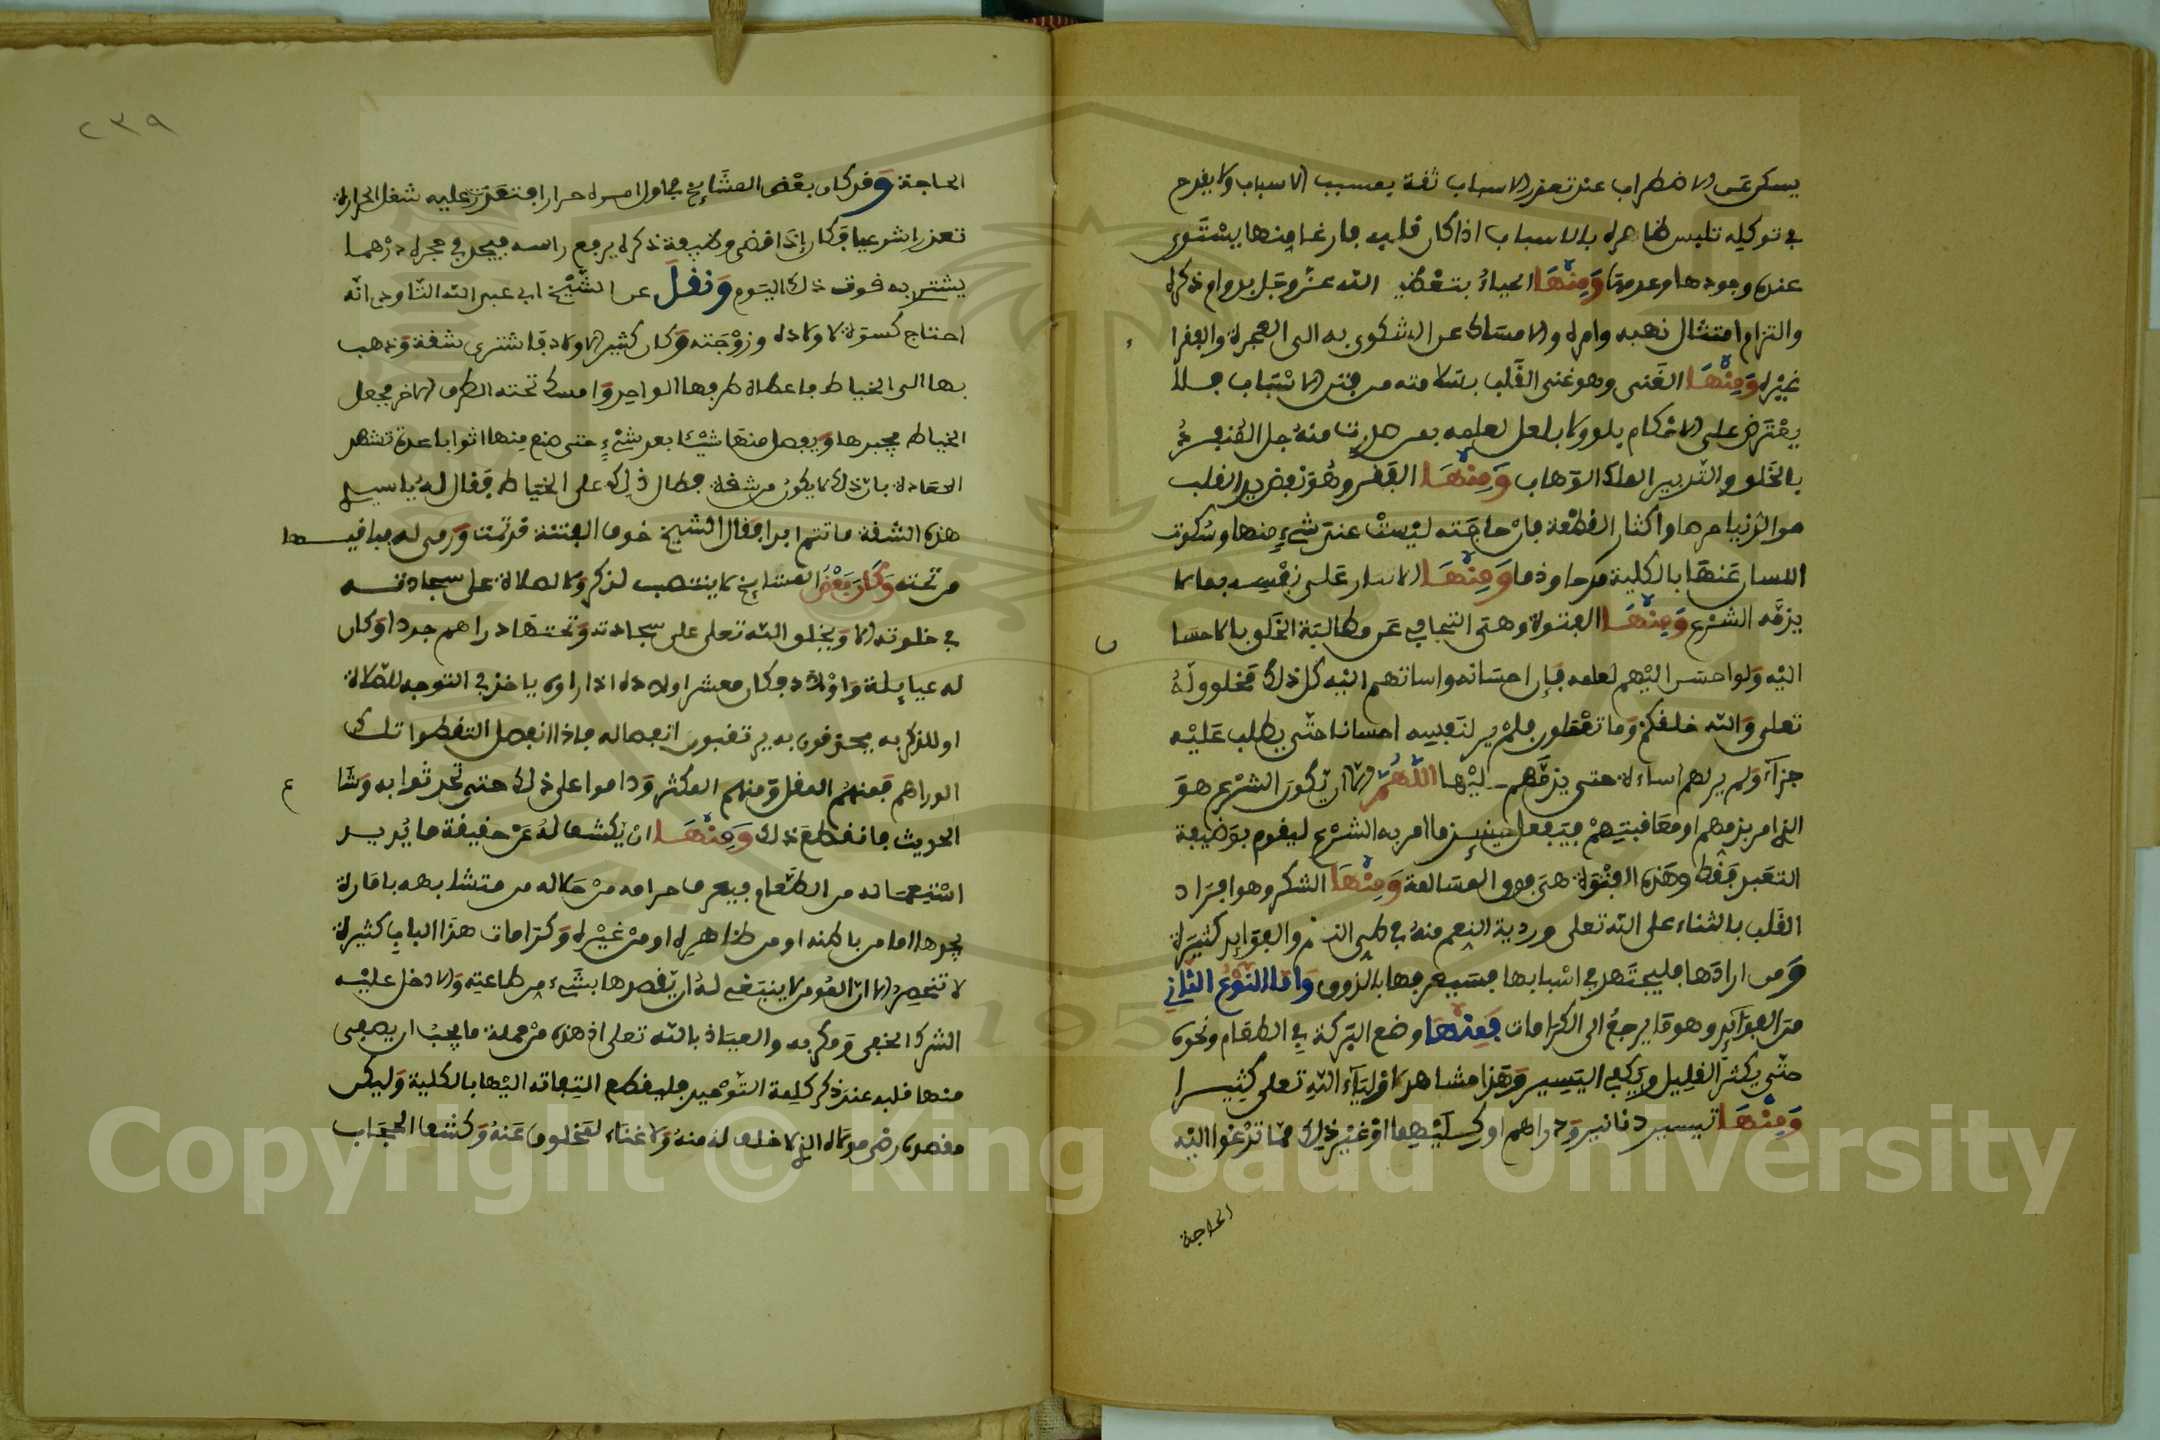 يسكن عن الاضطراب عند تعذر الاسباب ثقة بمسبب الاسباب ولا يقدح
في توكله تلبس ظاهره بالاسباب اذا كان قلبه فارغا منها يستوى
عنده وجودها وعدمها ومنها الحياء بتعظيم الله عز وجل بدوام ذكره
والتزام امتثال نهيه وامره والامساك عن الشكوى به الى العجزة والفقرا
غيره ومنها الغنى وهو غنى القلب بسلامته من فتن الاسباب فلا
يعترض على الاحكام بلو ولا بلعل لعلمه بمن صدرت منه جل المنفرد
بالخلق والتدبير الملك الوهاب ومنها الفقر وهو نفض يد القلب
من الدنيا حرصا واكثارا لقطعه بان حاجته ليست عند شيء منها وسكوت
اللسان عنها بالكلية مدحا وذما ومنها الايثار على نفسه بما لا
يذمه الشرع ومنها الفتوة وهي التجافي عن مطالبة الخلق بالاحسا
ن
اليه ولو احسن اليهم لعلمه بان احسانه واساتهم اليه كل ذلك مخلوق له
تعلى والله خلقكم وما تعملون فلم ير لنفسه احسانا حتى يطلب عليه
جزاء ولم ير لهم اساءة حتى يذمهم عليها اللهم الا ان يكون الشرع هو
الذي امر بذمهم او معاقبتهم فيفعل حينئذ ما امر به الشرع ليقوم بوظيفة
التعبد فقط وهذه الفتوة هي فوق المسالمة ومنها الشكر وهو افراد
القلب بالثناء على الله تعلى وردية النعم منه في طي النقم والفوايد كثيرة
ومن ارادها فليجتهد في اسبابها فسيعرفها بالذوق واما النوع الثاني
من الفوايد وهو ما يرجع الى الكرامات فمنها وضع البركة في الطعام ونحوه
حتى يكثر القليل ويكفي اليسير وهذا مشاهد لاولياء الله تعلى كثيرا
ومنها تيسير دنانير ودراهم او كليهما او غير ذلك مما تدعوا اليه
الحاجة
٢٣٩
الحاجة وقد كان بعض المشايخ في اول امره حرارا فتعذر عليه شغل الحرارة
تعذرا شرعيا فكان اذا قضى وظيفة ذكره يرفع راسه فيجد في حجره درهما
يشترى به قوت ذلك اليوم ونقل عن الشيخ ابي عبد الله التاودى انه
احتاج كسوة لاولاده وزوجته وكان كثير الاولاد فاشترى شقة وذهب
بها الى الخياط فاعطاه طرفها الواحد وامسك تحته الطرف الاخر فجعل
الخياط يجبرها ويفصل منها شيئا بعد شيء حتى صنع منها اثوابا عدة تشهد
العادة بان ذلك لا يكون من شقة فطال ذلك على الخياط فقال له يا سيدى
هذه الشقة ما تتم ابدا فقال الشيخ خوف الفتنة قد تمت ورمى له بباقيها
من تحته وكان بعض المشايخ لا ينتصب لذكر ولا لصلاة على سجادته
في خلوته الا ويخلق الله تعلى على سجادته وتحتها دراهم جددا وكان
له عيايلة واولاد فكان معشر اولاده اذا راوه ياخذ في التوجه للصلاة
او للذكر به يحدقون به يرتقبون انفصاله فاذا انفصل التقطوا تلك
الدراهم فمنهم المقل ومنهم المكثر وداموا على ذلك حتى تحدثوا به وشا
ع
الحديث فانقطع ذلك ومنها ان يكشف له عن حقيقة ما يريد
استيعماله من الطعام فيعرف حرامه من حلاله من متشابهه بامارة
يجدها اما من باطنه او من ظاهره او من غيره وكرامات هذا الباب كثيرة
لا تنحصر الا ان المومن لا ينبغي له ان يقصدها بشيء من طاعته والا دخل عليه
الشرك الخفي ومكر به والعياذ بالله تعلى اذ هذه من جملة ما يجب ان يصفى
منها قلبه عند ذكر كلمة التوحيد فليقطع التفاته اليها بالكلية وليكن
مقصوده رضى مولاه الذي لا خلف له منه ولا غناء لمخلوق عنه وكشف الحجاب
Copyright © King Saud University
195